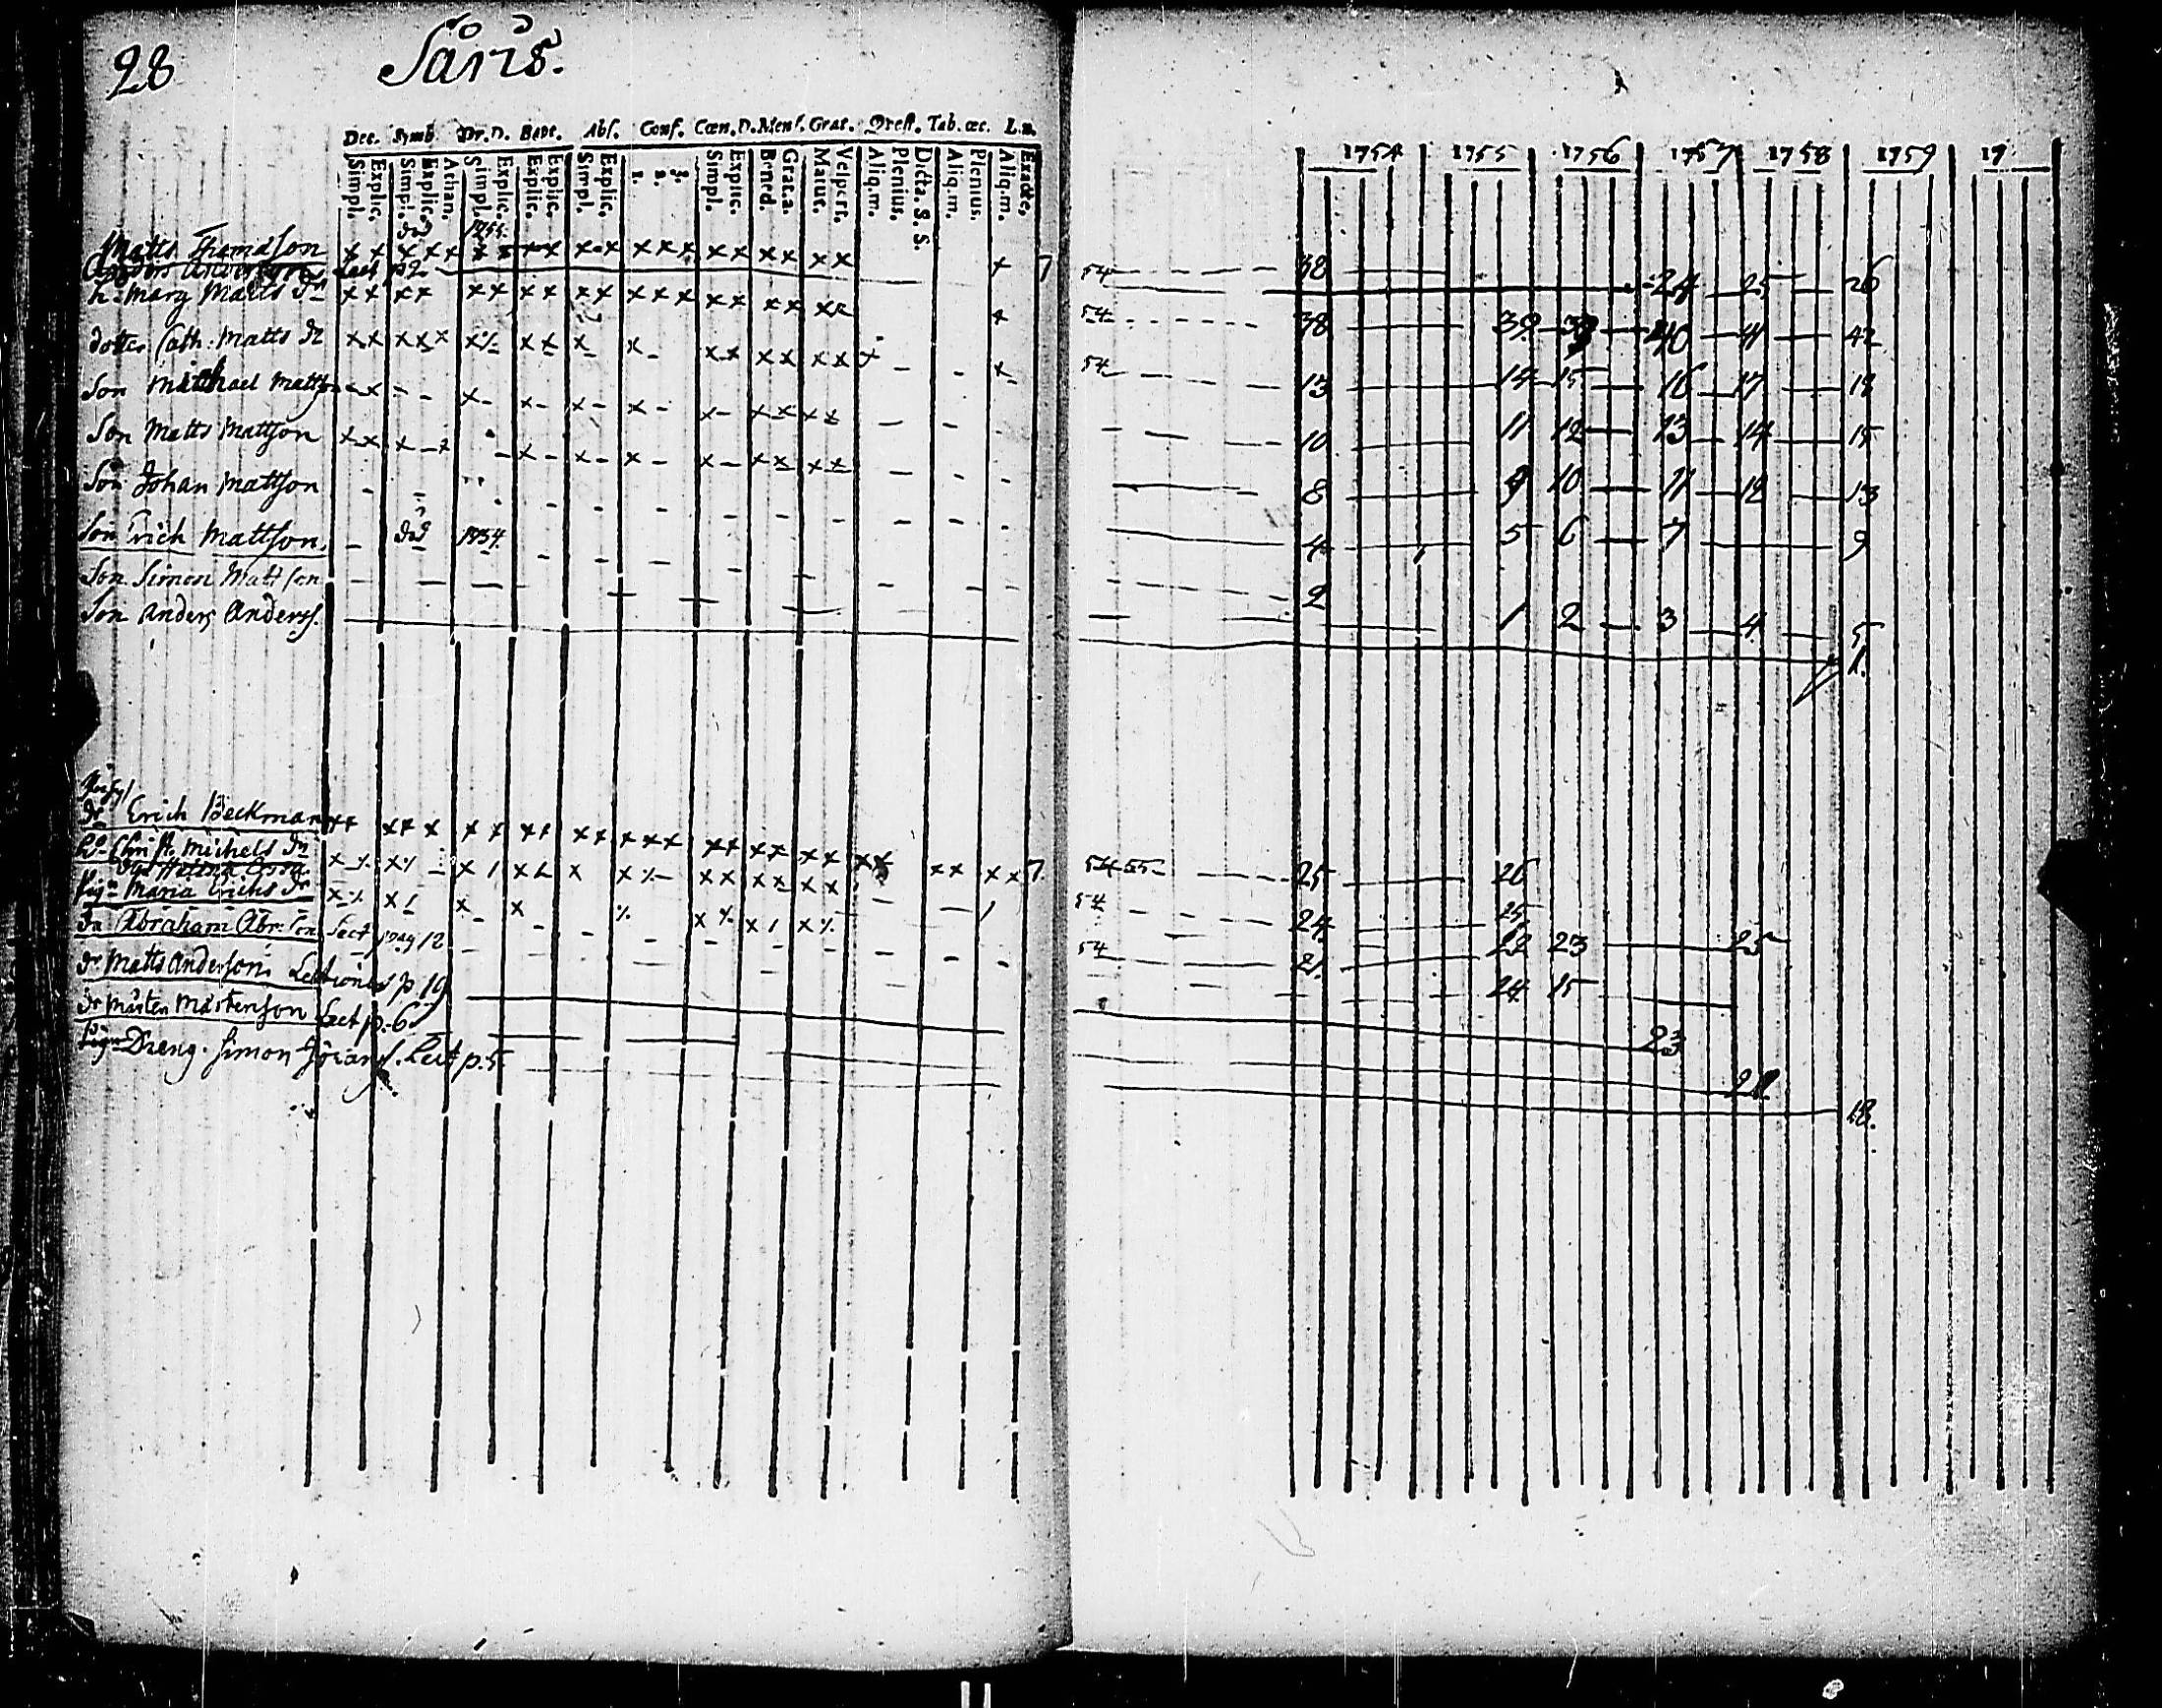 28
Såris.
Dec. Symb. Or. D. Bapt. Abs. Conf. Cœn. D. Mens. Grat. Qvest. Tab. œc. L. n.
Simpl. Explic. Simpl. Explic. Athan. Simpl. Explic. Explic. Explic. Simpl. Explic. 1. 2. 3. Simpl. Explic. Bened. Grat. a. Matut. Vespert. Aliq.m. Plenius. Dicta. S. S. Aliq.m. Plenius. Aliq.m. Exacte.
1754 1755 1756 1757 1758 1759 17
död 1755.
Matts Thomasson x x x x x x x x x x x x x x x x x x x x x 7 54 38
Anders Andersson Lect p 2 24 25 26
h: Marg Matts dr x x x x x x x x x x x x x x x x x x x x 54 38 39 39 40 41 42
dotter Cath: Matts dr x x x x x x x x x x x x x x x x x x 54 13 14 15 16 17 18
Son Michael Mattson x x x x x x x x x x x 10 11 12 13 14 15
Son Matts Mattson x x x x x x x x x x x x 8 9 10 11 12 13
Son Johan Mattson 4 5 6 7 9
Son Erich Mattson. död 1754. 2
Son Simon Mattson 1 2 3 4 5
Son Anders Anderss. 1.
dr Erich Beckman x x x x x x x x x x x x x x x x x x x x x x x x x x 7. 54 55 25 26
h: Christ. Michels dr 54 24 25
pig: Maria Erichs dr 54 21 22 23 25
dr Abraham Abr:son Lect pag 12 24 15
dr Matts Andersson Lectiones p. 19 23
dr Mårten Mårtenson Lect p. 6 21
Dreng. Simon Jörans. Lect p. 5. 18.